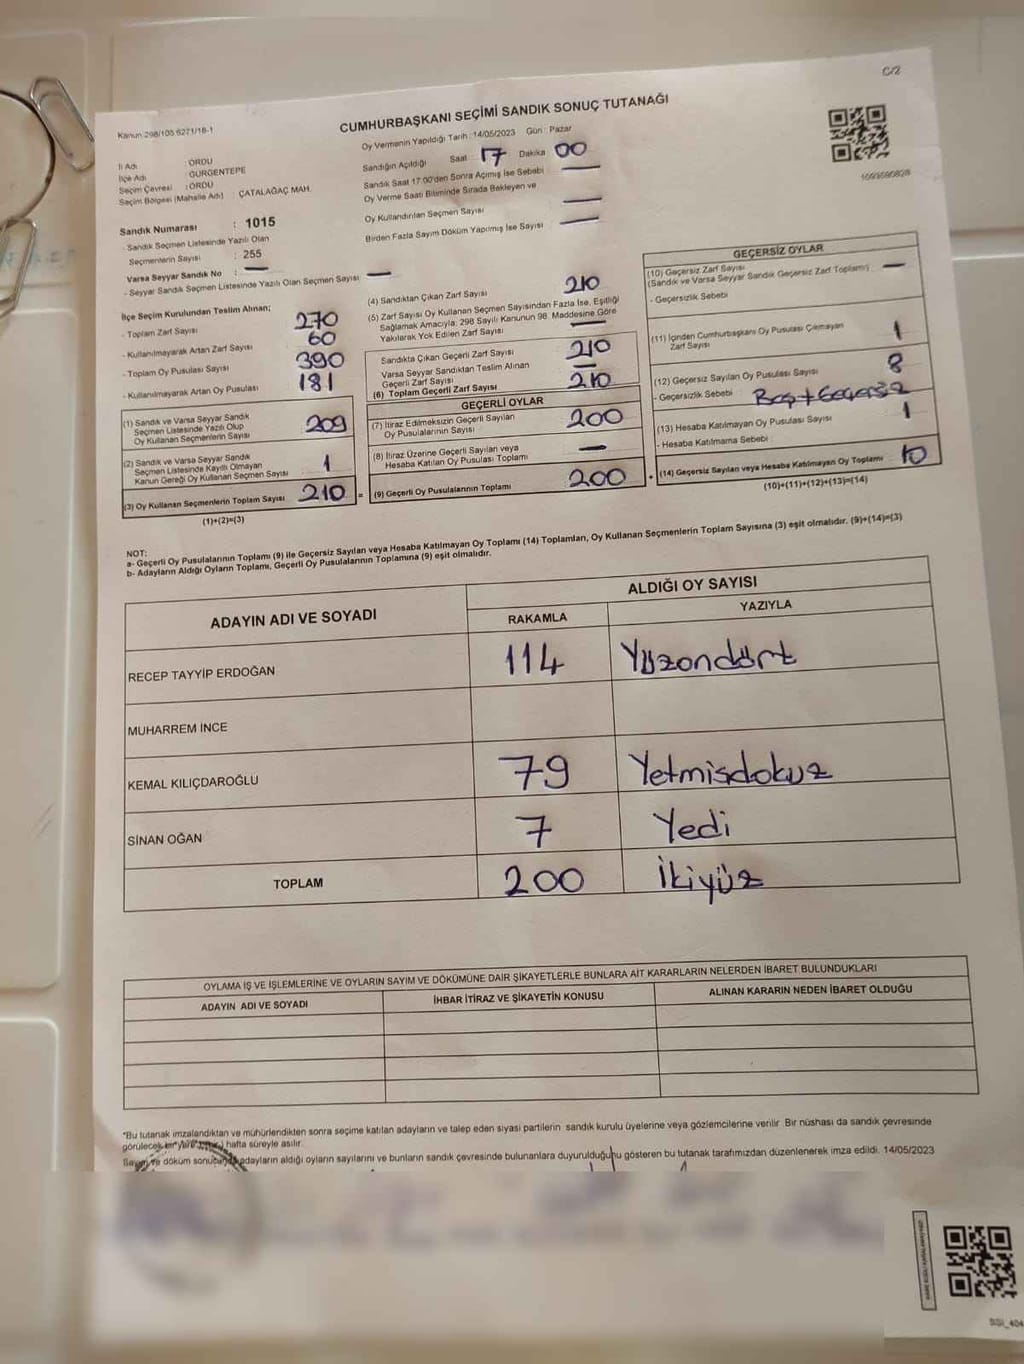 C/2
Kanun 298/105 6271/18-1
CUMHURBAŞKANI SEÇİMİ SANDIK SONUÇ TUTANAĞI
Oy Vermenin Yapıldığı Tarih : 14/05/2023 Gün : Pazar
İl Adı : ORDU
İlçe Adı : GÜRGENTEPE
Seçim Çevresi : ORDU
Seçim Bölgesi (Mahalle Adı) : ÇATALAĞAÇ MAH.
Sandığın Açıldığı Saat 17 Dakika 00
Sandık Saat 17:00'den Sonra Açımış İse Sebebi —
Oy Verme Saati Bitiminde Sırada Bekleyen ve
Oy Kullandırılan Seçmen Sayısı —
Birden Fazla Sayım Döküm Yapılmış İse Sayısı —
Sandık Numarası : 1015
- Sandık Seçmen Listesinde Yazılı Olan
Seçmenlerin Sayısı : 255
Varsa Seyyar Sandık No : —
- Seyyar Sandık Seçmen Listesinde Yazılı Olan Seçmen Sayısı : —
İlçe Seçim Kurulundan Teslim Alınan;
- Toplam Zarf Sayısı 270
- Kullanılmayarak Artan Zarf Sayısı 60
- Toplam Oy Pusulası Sayısı 390
- Kullanılmayarak Artan Oy Pusulası 181
(1) Sandık ve Varsa Seyyar Sandık
Seçmen Listesinde Yazılı Olup
Oy Kullanan Seçmenlerin Sayısı 209
(2) Sandık ve Varsa Seyyar Sandık
Seçmen Listesinde Kayıtlı Olmayan
Kanun Gereği Oy Kullanan Seçmen Sayısı 1
(3) Oy Kullanan Seçmenlerin Toplam Sayısı 210
(1)+(2)=(3)
(4) Sandıktan Çıkan Zarf Sayısı 210
(5) Zarf Sayısı Oy Kullanan Seçmen Sayısından Fazla İse, Eşitliği
Sağlamak Amacıyla; 298 Sayılı Kanunun 98. Maddesine Göre
Yakılarak Yok Edilen Zarf Sayısı —
Sandıkta Çıkan Geçerli Zarf Sayısı 210
Varsa Seyyar Sandıktan Teslim Alınan
Geçerli Zarf Sayısı —
(6) Toplam Geçerli Zarf Sayısı 210
GEÇERLİ OYLAR
(7) İtiraz Edilmeksizin Geçerli Sayılan
Oy Pusulalarının Sayısı 200
(8) İtiraz Üzerine Geçerli Sayılan veya
Hesaba Katılan Oy Pusulası Toplamı —
= (9) Geçerli Oy Pusulalarının Toplamı 200
GEÇERSİZ OYLAR
(10) Geçersiz Zarf Sayısı
(Sandık ve Varsa Seyyar Sandık Geçersiz Zarf Toplamı) —
- Geçersizlik Sebebi
(11) İçinden Cumhurbaşkanı Oy Pusulası Çıkmayan
Zarf Sayısı 1
(12) Geçersiz Sayılan Oy Pusulası Sayısı 8
- Geçersizlik Sebebi Boş+Geçersiz
(13) Hesaba Katılmayan Oy Pusulası Sayısı 1
- Hesaba Katılmama Sebebi
+ (14) Geçersiz Sayılan veya Hesaba Katılmayan Oy Toplamı 10
(10)+(11)+(12)+(13)=(14)
NOT:
a- Geçerli Oy Pusulalarının Toplamı (9) ile Geçersiz Sayılan veya Hesaba Katılmayan Oy Toplamı (14) Toplamları, Oy Kullanan Seçmenlerin Toplam Sayısına (3) eşit olmalıdır. (9)+(14)=(3)
b- Adayların Aldığı Oyların Toplamı, Geçerli Oy Pusulalarının Toplamına (9) eşit olmalıdır.
ADAYIN ADI VE SOYADI ALDIĞI OY SAYISI
RAKAMLA YAZIYLA
RECEP TAYYİP ERDOĞAN 114 Yüzondört
MUHARREM İNCE
KEMAL KILIÇDAROĞLU 79 Yetmişdokuz
SİNAN OĞAN 7 Yedi
TOPLAM 200 İkiyüz
OYLAMA İŞ VE İŞLEMLERİNE VE OYLARIN SAYIM VE DÖKÜMÜNE DAİR ŞİKAYETLERLE BUNLARA AİT KARARLARIN NELERDEN İBARET BULUNDUKLARI
ADAYIN ADI VE SOYADI İHBAR İTİRAZ VE ŞİKAYETİN KONUSU ALINAN KARARIN NEDEN İBARET OLDUĞU
*Bu tutanak imzalandıktan ve mühürlendikten sonra seçime katılan adayların ve talep eden siyasi partilerin sandık kurulu üyelerine veya gözlemcilerine verilir. Bir nüshası da sandık çevresinde
görülecek bir yere hafta süreyle asılır.
Sayım ve döküm sonucunda adayların aldığı oyların sayılarını ve bunların sandık çevresinde bulunanlara duyurulduğunu gösteren bu tutanak tarafımızdan düzenlenerek imza edildi. 14/05/2023